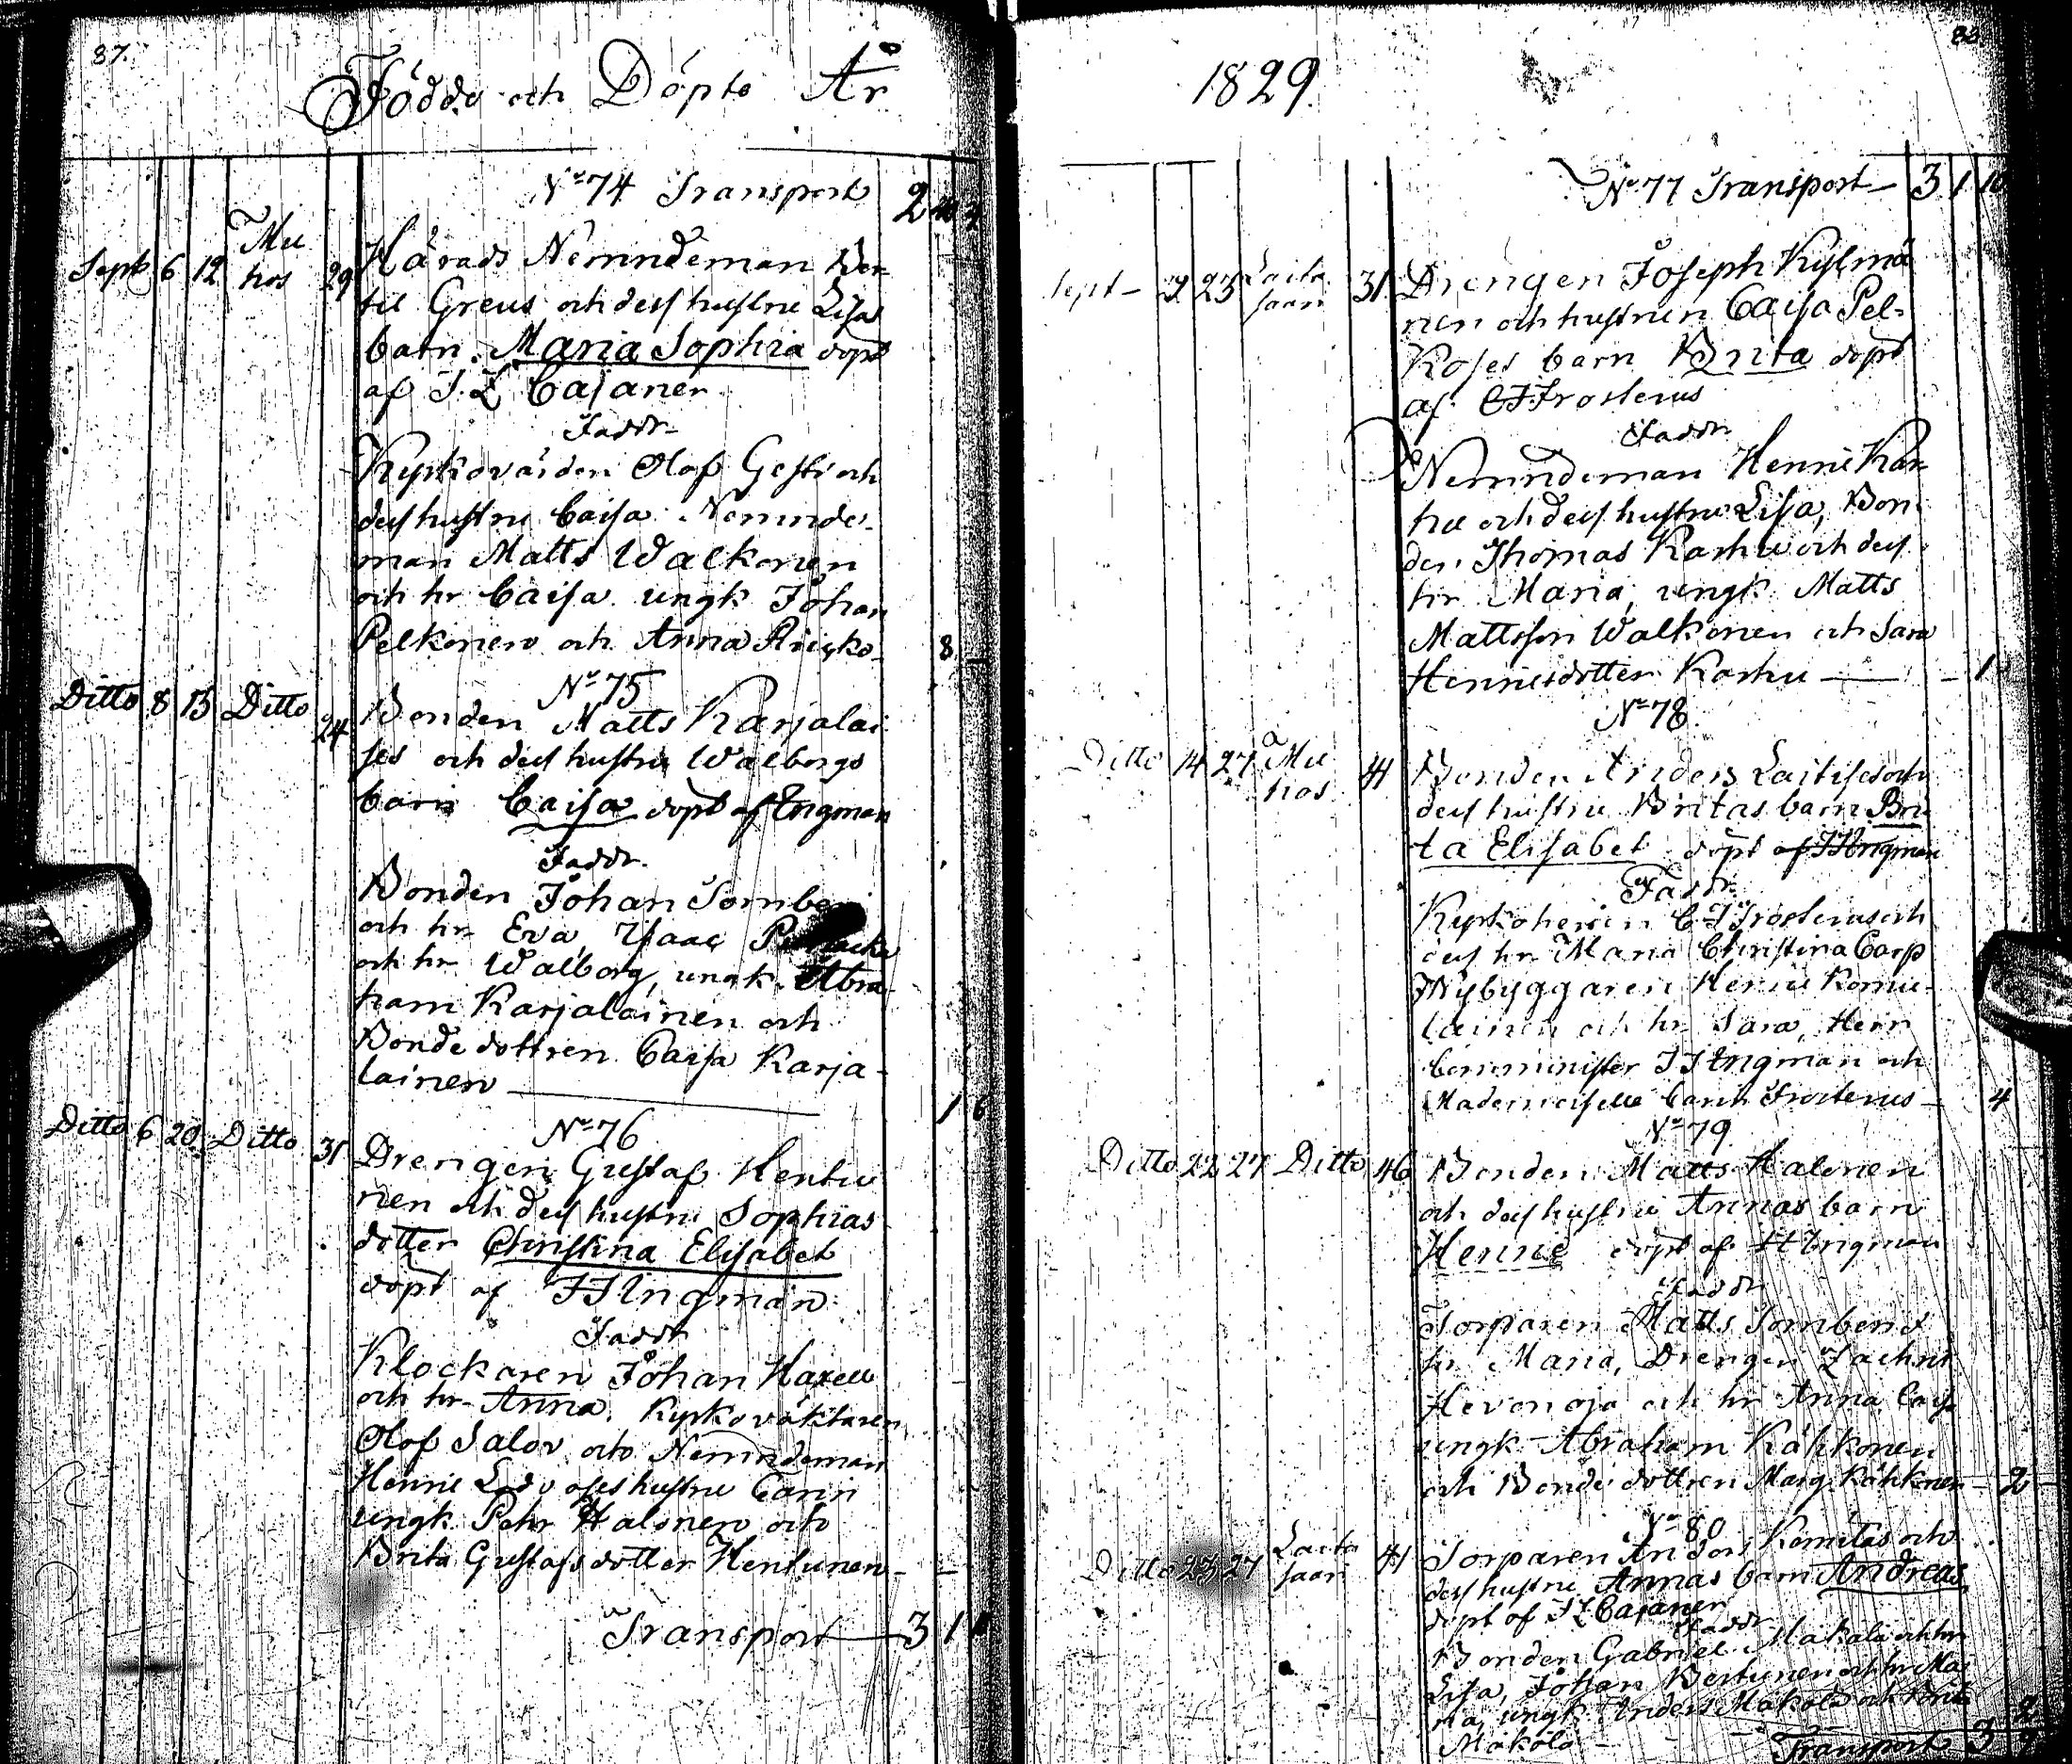 87.
Födde och Döpte År
No 74 Transport 2
Sept 6 12 Mu
hos 29
Härads Nemndeman Ber-
til Greus och dess hustru Lisas
barn Maria Sophia döpt
af J. L Cajaner
Faddr
Kyrkovärden Olof Gesti och
dess hustru Caisa Nemnde-
man Matts Walkonen
och hr Caisa ungk Johan
Pelkonen och Anna 8
No 75
Ditto 8 13 Ditto 24
Bonden Matts Karjalai
ses och dess hustru Walborgs
barn Caisa döpt af Engman
Faddr.
Bonden Johan Tornberg
och hr Eva, Isaac
och hr Walborg, ungk. Abra-
ham Karjalainen och
Bondedottren Caisa Karja-
lainen 1 6
No 76
Ditto 6 20 Ditto 31
Drengen Gustaf Hentu
nen och dess hustru Sophias
dotter Christina Elisabet
döpt af JJ Engman
Faddr
Klockaren Johan Haxell
och hr Anna, Kyrkoväktaren
Olof Salov och Nemndeman
Henric hustru Carin
ungk. Pehr Halonen och
Brita Gustafsdotter Hentunen
Transport 3 1
1829.
88
No 77 Transport 3 1 10
Sept 2 23 Laita
saari 31
Drengen Joseph Kylmä
nen och hustrun Caisa Pel-
koses barn Brita döpt
af CJ Frosterus
Faddr
Nemndeman Henric Kar-
hu och dess hustru Lisa, Bon-
den Thomas Karhu och dess
hr Maria, ungk. Matts
Mattsson Walkonen och Sara
Henricsdotter Karhu 1
No 78.
Ditto 14 27 a Mu
hos 41
Bonden Anders Laitises och
dess hustru Britas barn Bri
ta Elisabet döpt af JJ Engman
Faddr
Kyrkoherren CJ Frosterus och
dess hr Maria Christina Carp
Nybyggaren Henric Komu-
lainen och hr Sara, Herr
Comminister JJ Engman och
Mademoiselle Carin Frosterus 4
No 79
Ditto 22 27 Ditto 46
Bonden Matts Halonen
och dess hustru Annas barn
Henric döpt af JJ Engman
Faddr
Torparen Matts Tornberg &
hr Maria, Drengen Zachris
Hevonoja och hr Anna Caisa
ungk Abraham Kähkönen
och Bondedottren Marg. Kähkönen 2
No 80
Ditto 23 27 Laita
saari 41
Torparen Anders och
dess hustru Annas barn Andreas,
döpt af JL Cajaner
Faddr
Bonden Gabriel Makola och hr
Lisa, Johan och hr Ma
ria, ungk. Anders Makola och Brita
Makola 2
Transport 3